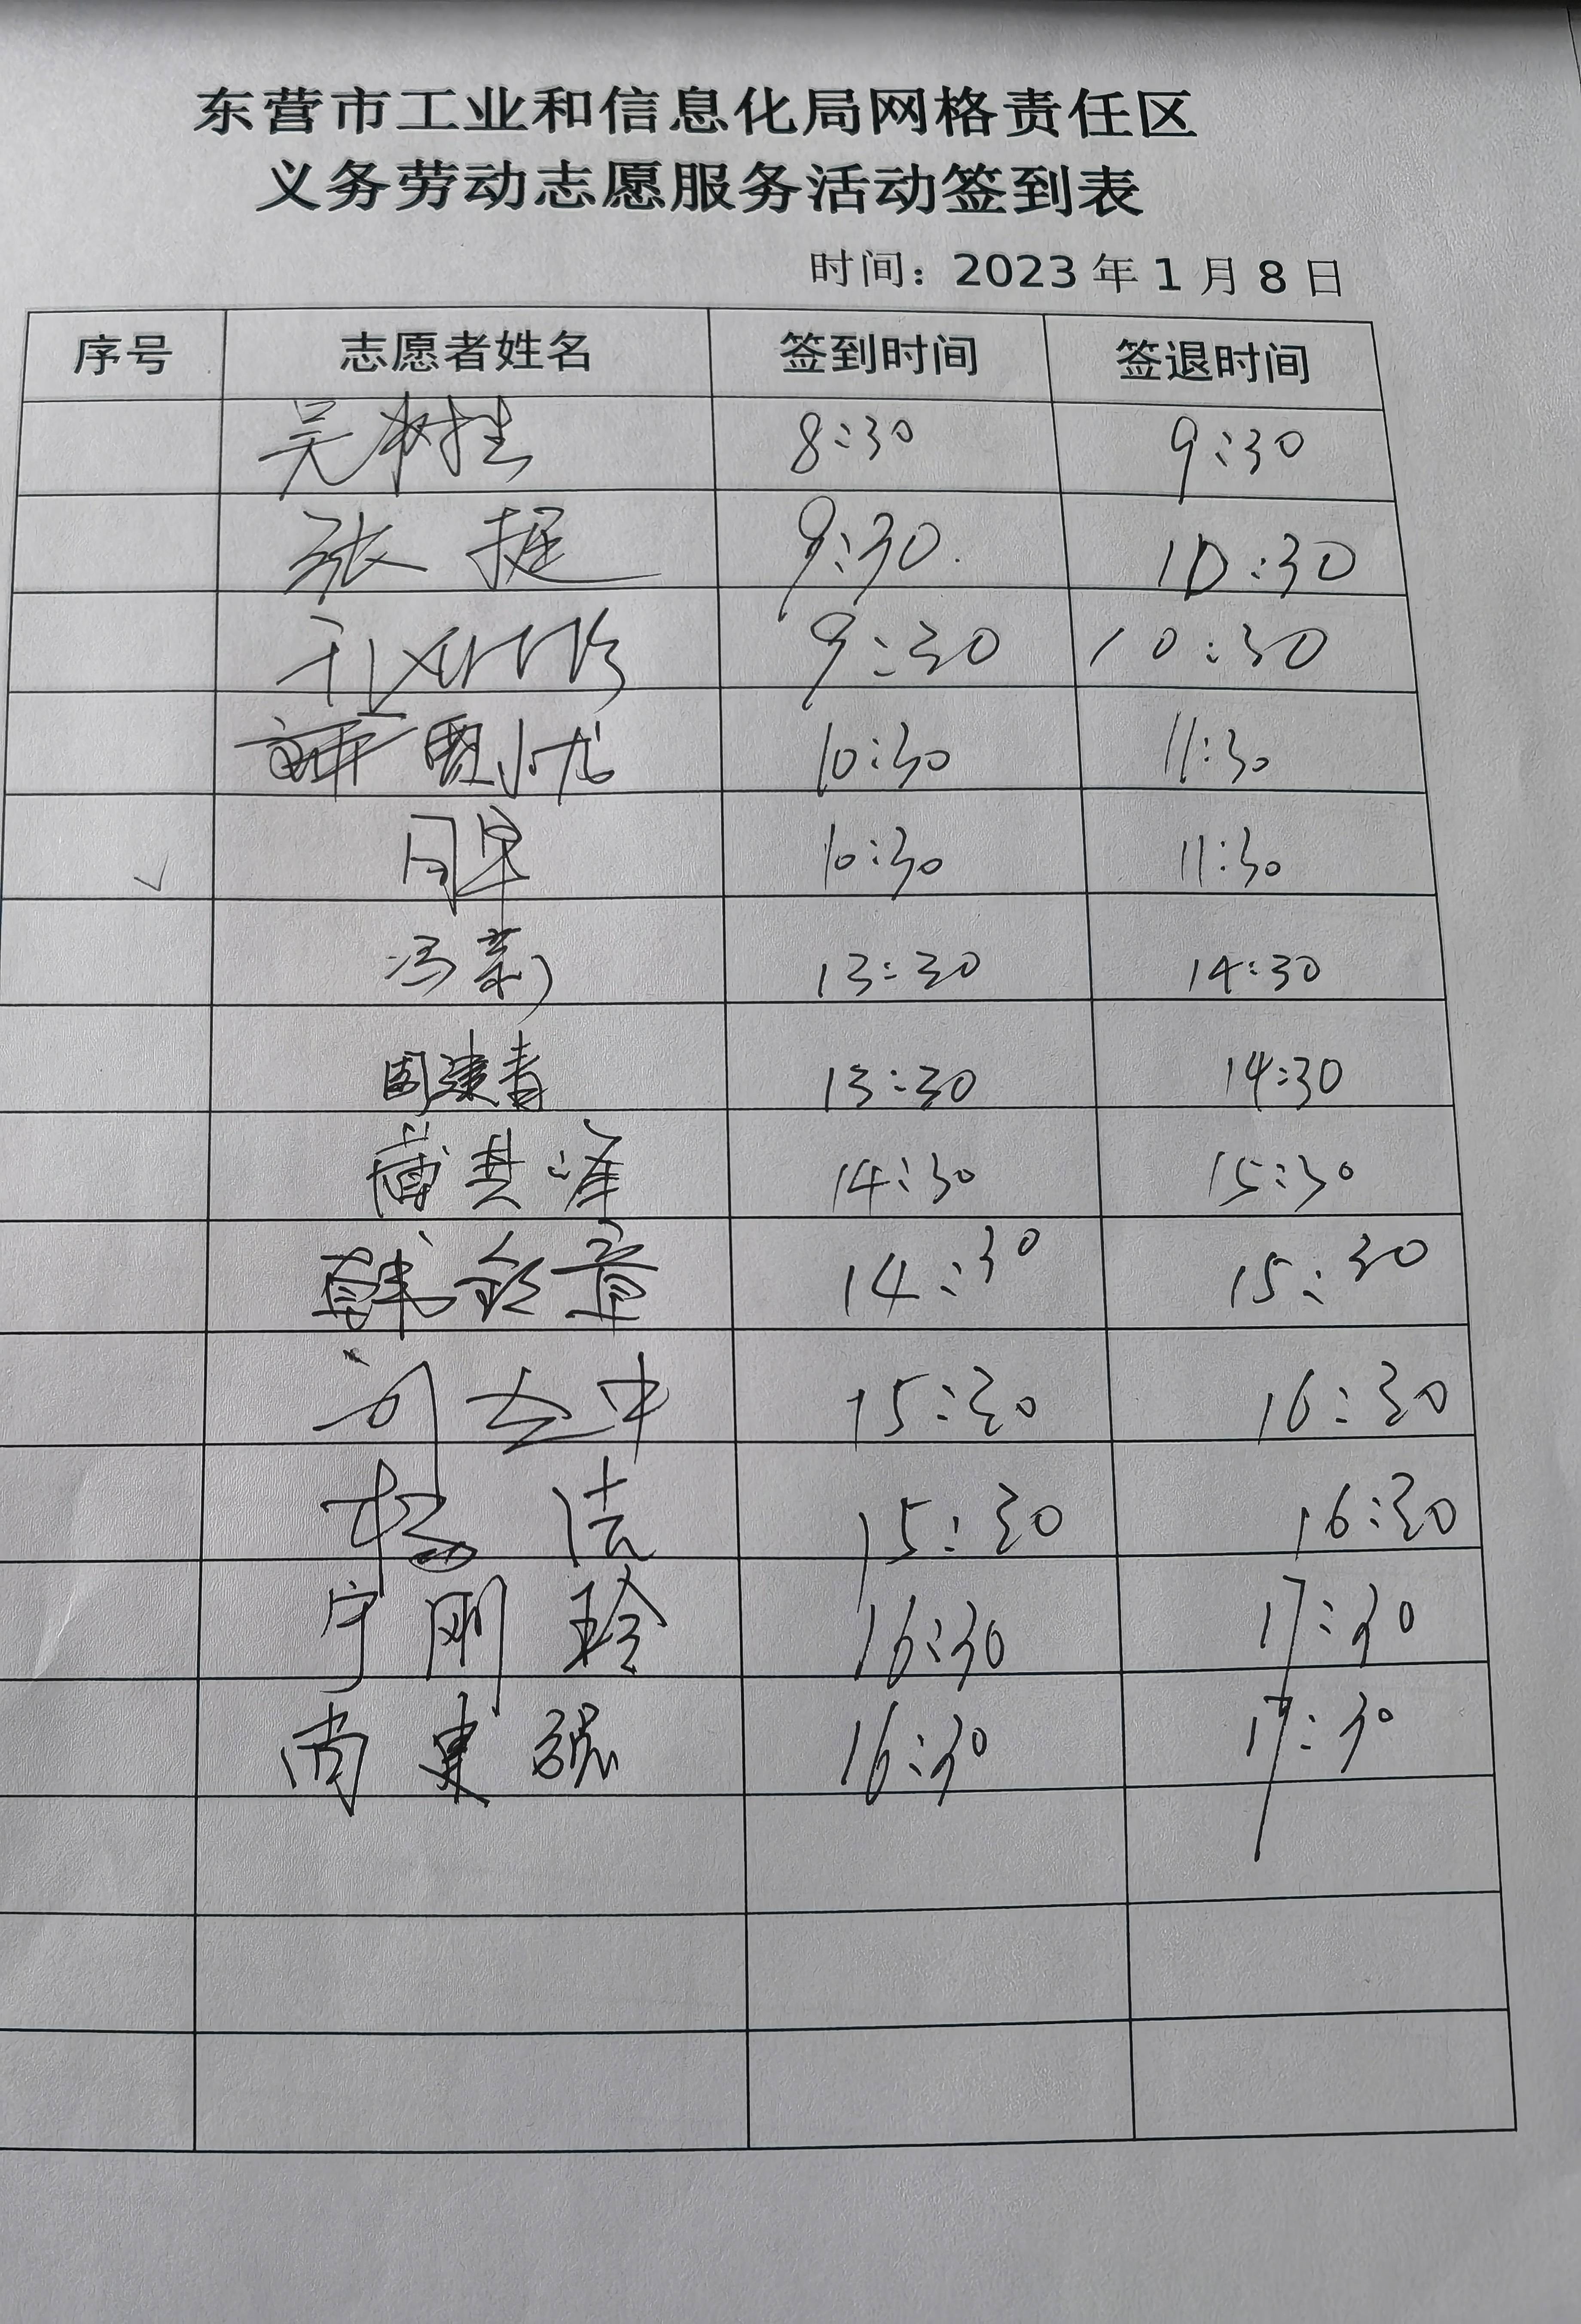 东营市工业和信息化局网格责任区
义务劳动志愿服务活动签到表
时间：2023 年 1 月 8 日
序号 志愿者姓名 签到时间 签退时间
吴树桂 8:30 9:30
张挺 9:30. 10:30
9:30 10:30
小龙 10:30 11:30
√ 10:30 11:30
冯莉 13:30 14:30
周建青 13:30 14:30
黄其峰 14:30 15:30
韩章 14:30 15:30
中 15:30 16:30
杨洁 15:30 16:30
宁刚玲 16:30 17:30
尚建强 16:30 17:30